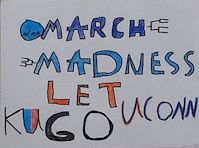 MARCH
MADNESS
LET
KU GO UCONN